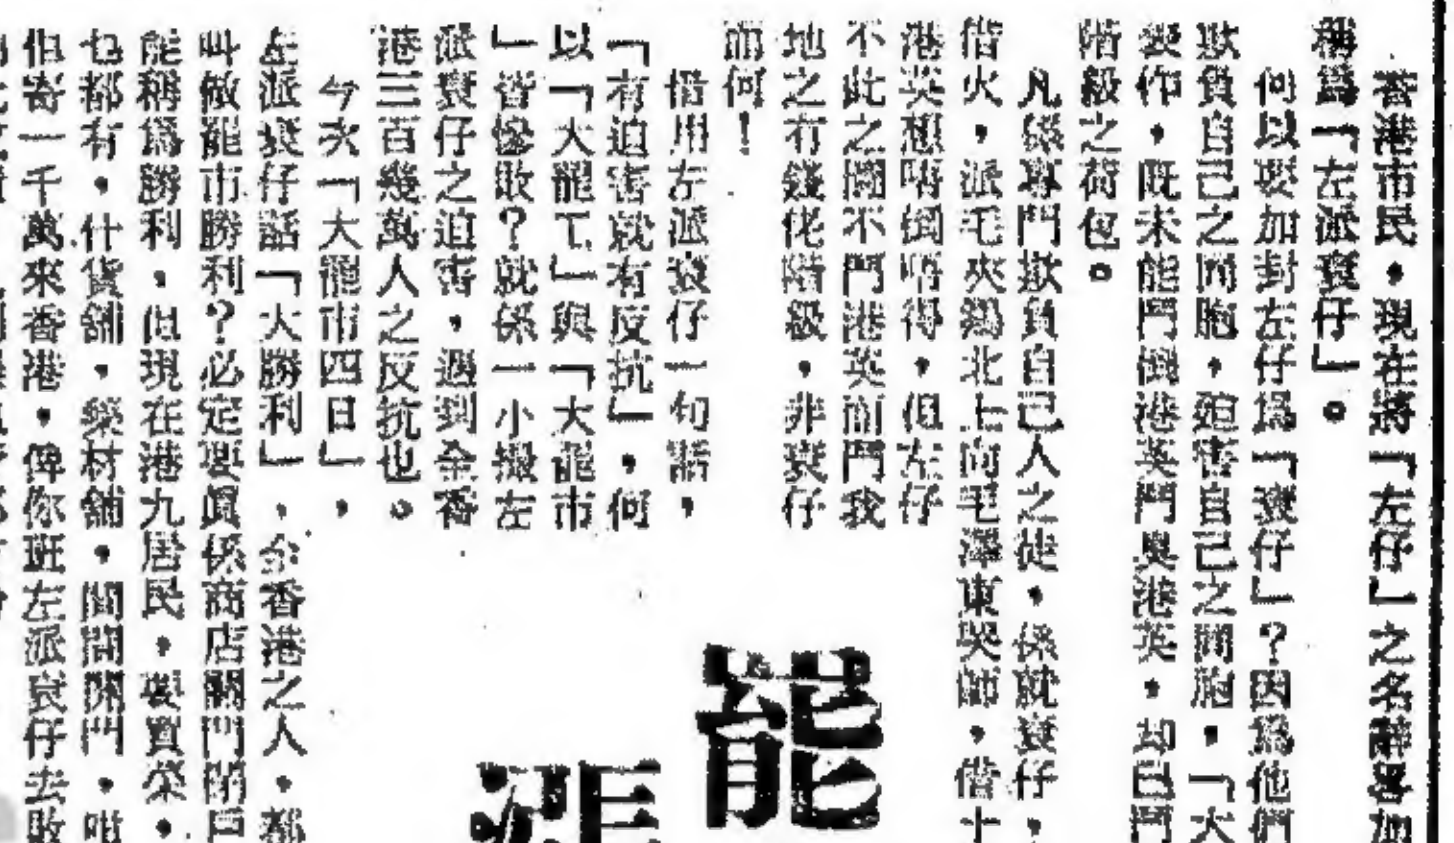 香港市民，現在將「左仔」之名辭畧加
稱爲「左派衰仔」。
何以要加封左仔爲「衰仔」？因爲他們
欺負自己之同胞，迫害自己之同胞，「大
要作，既未能鬥倒港英鬥臭港英，却已鬥
階級之荷包。
凡係專門欺負自己人之徒，係就衰仔，
借火，派毛夾鴻北上向毛澤東哭師，借十
港英想唔倒唔得，但左仔
不此之圖不鬥港英而鬥我
地之冇錢佬階級，非衰仔
而何！
借用左派衰仔一句話，
「有迫害就有反抗」，何
以「大罷工」與「大罷市
」皆慘敗？就係一小撮左
派衰仔之迫害，遇到全香
港三百幾萬人之反抗也。
今次「大罷市四日」，
左派衰仔話「大勝利」，全香港之人，都
叫做罷市勝利？必定要眞係商店關門閉戶
能稱爲勝利，但現在港九居民，要買柴，
乜都有，什貨舖，藥材舖，間間開門，咁
但寄一千萬來香港，俾你班左派衰仔去敗
罷
派